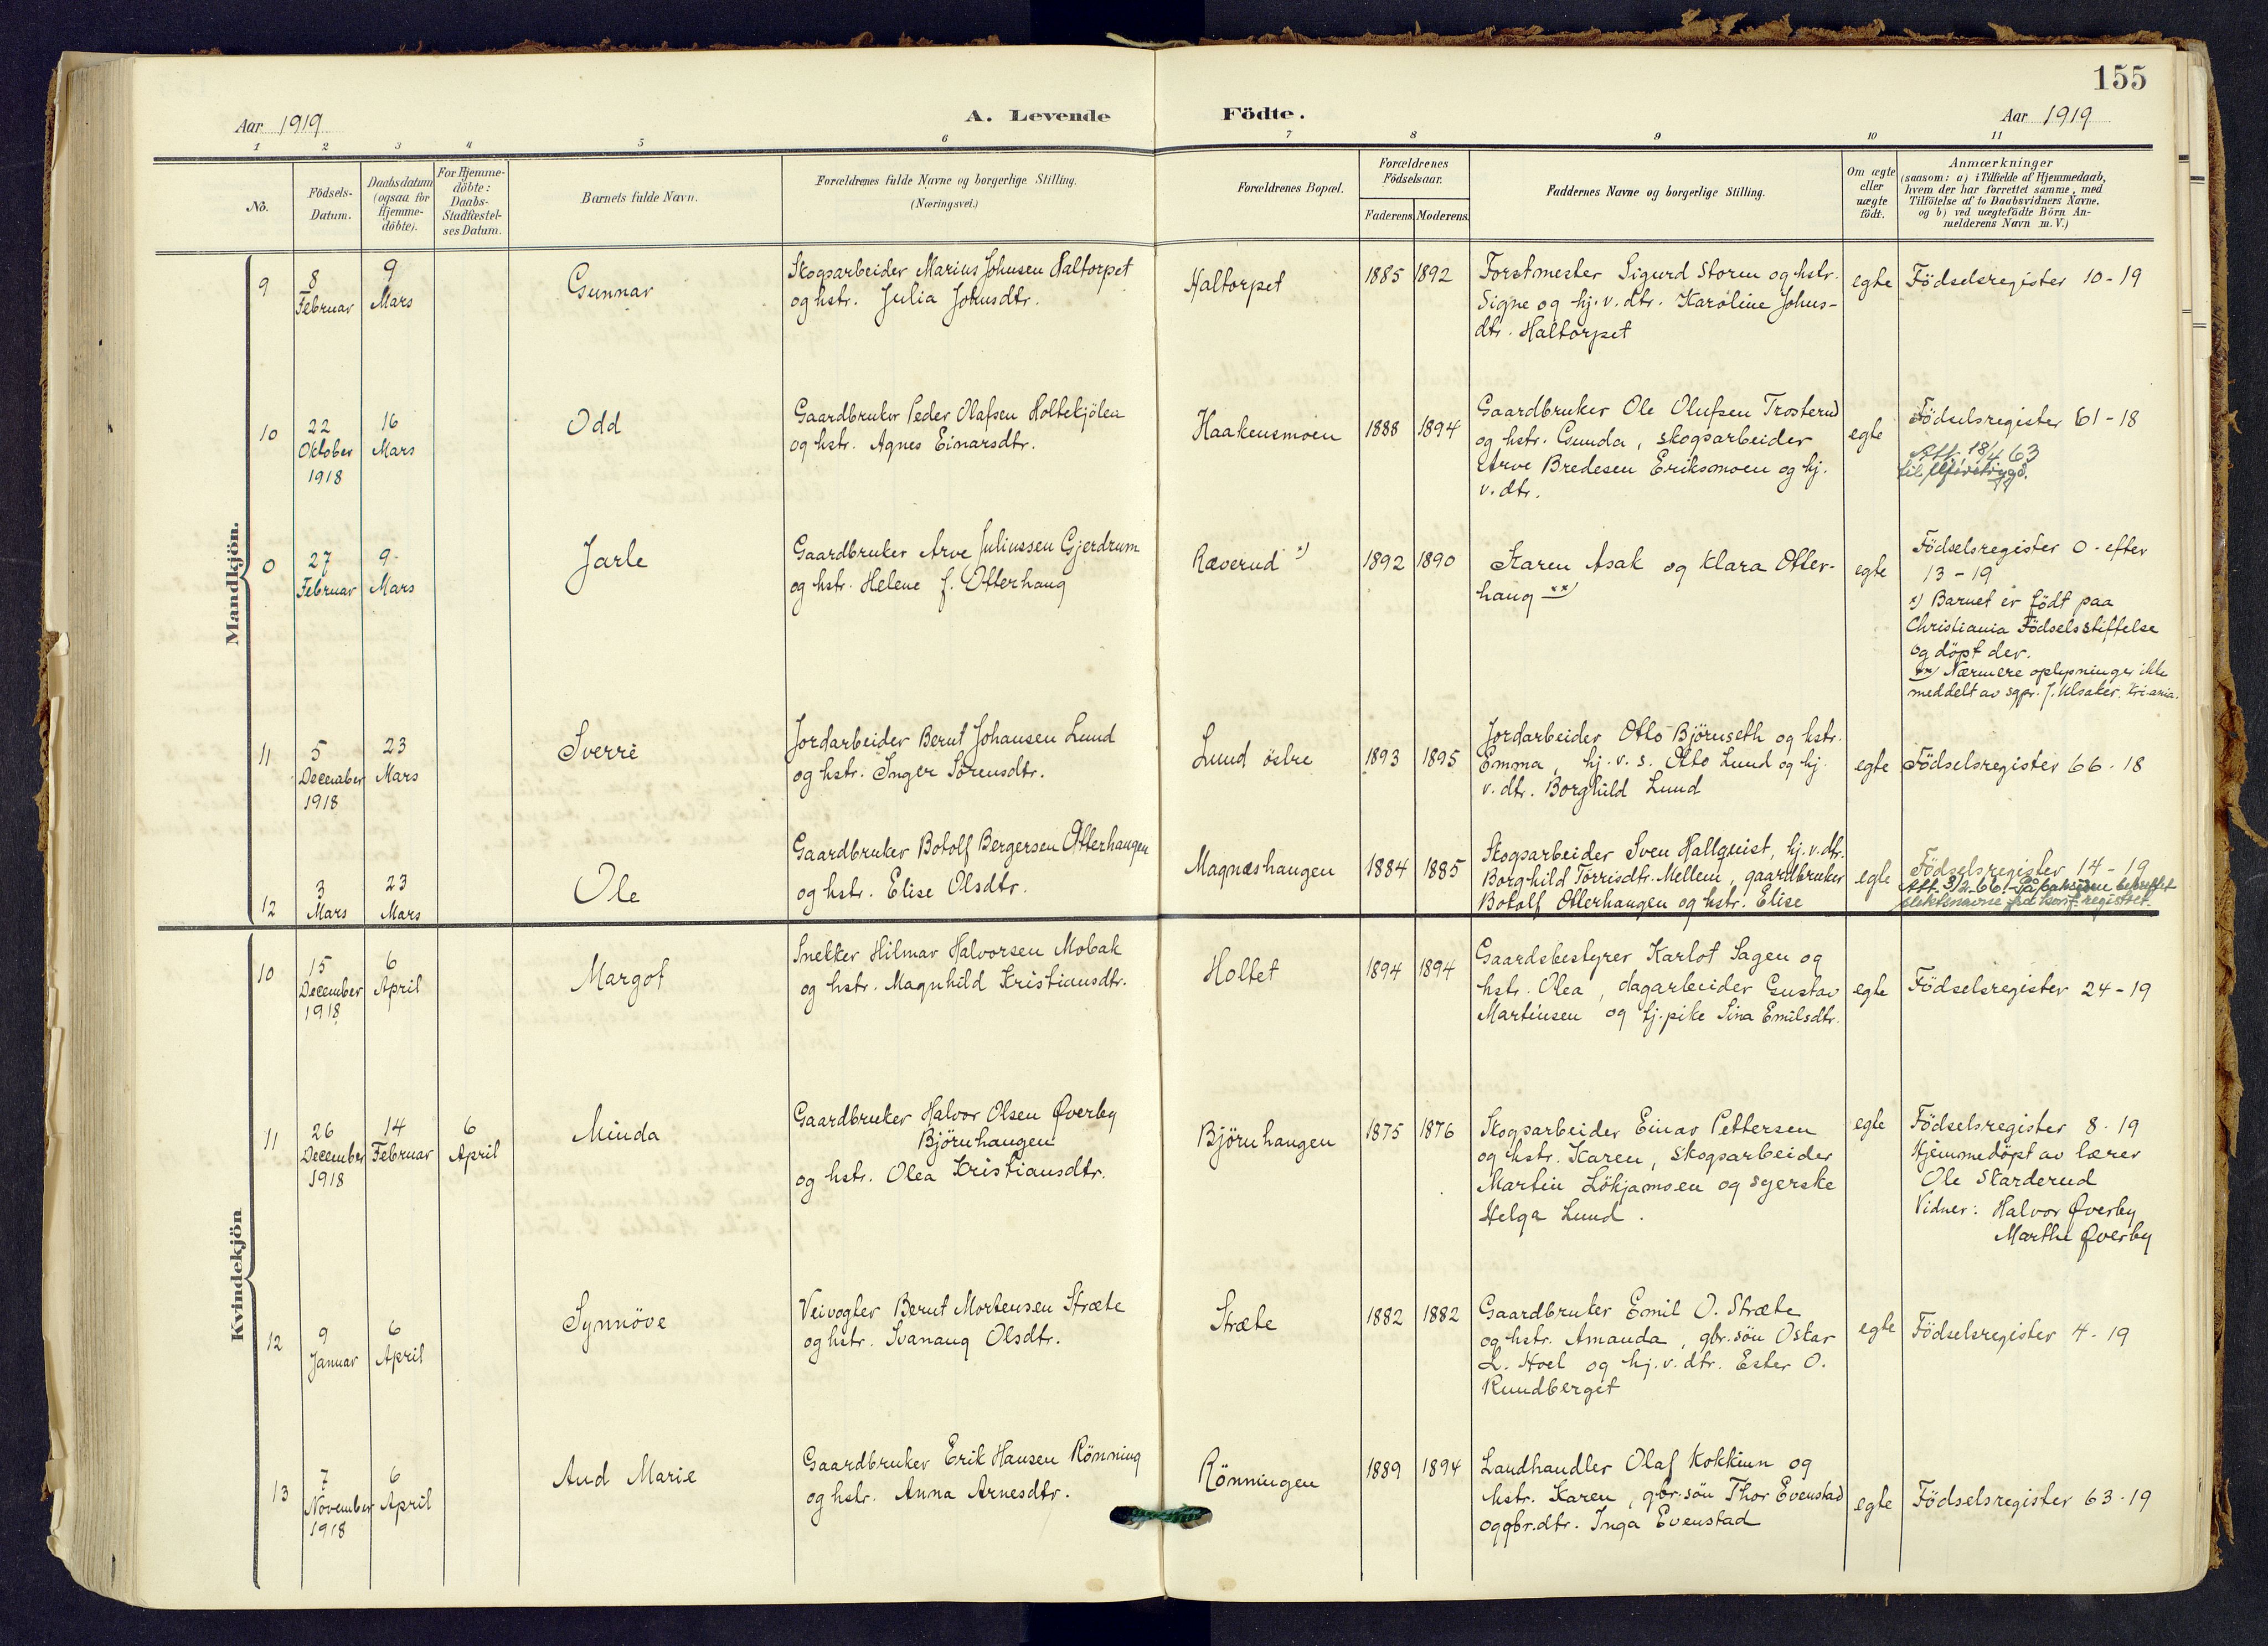 155
Aar 1919
A. Levende Födte.
Aar 1919
1 2 3 4 5 6 7 8 9 10 11
No.
Födsels-
Datum.
Daabsdatum
(ogsaa for
Hjemme-
döbte).
For Hjemme-
döbte:
Daabs-
Stadfæstel-
ses Datum.
Barnets fulde Navn.
Forældrenes fulde Navne og borgerlige Stilling.
(Næringsvei.)
Forældrenes Bopæl.
Forældrenes
Födselsaar.
Faderens. Moderens.
Faddernes Navne og borgerlige Stilling.
Om ægte
eller
uægte
født.
Anmærkninger
(saasom: a) i Tilfælde af Hjemmedaab,
hvem der har forrettet samme, med
Tilföielse af to Daabsvidners Navne,
og b) ved uægtefödte Börn An-
melderens Navn m.V.)
Mandkjön.
9
8
Februar
9
Mars
Gunnar
Skogsarbeider Marius Johnsen Haltorpet
og hstr. Julia Johnsdtr.
Haltorpet
1885 1892
Forstmester Sigurd Storm og hstr.
Signe og hj. v. dtr. Karoline Johns-
dtr. Haltorpet
egte
Födselsregister 10-19
10
22
Oktober
1918
16
Mars
Odd
Gaardbruker Peder Olafsen Holtekjölen
og hstr. Agnes Einarsdtr.
Haakensmoen
1888 1894
Gaardbruker Ole Olufsen Trosterud
og hstr. Gunda, skogsarbeider
Arve Bredesen Eriksmoen og hj.
v. dtr.
egte
Födselsregister 61-18
Att. 18/4 63
til
0
27
Februar
9
Mars
Jarle
Gaardbruker Arve Juliussen Gjerdrum
og hstr. Helene f. Otterhaug
Ræverud x)
1892 1890
Karen Asak og Klara Otter-
haug xx)
egte
Födselsregister 0 - efter
13 - 19
x) Barnet er födt paa
Christiania Födselsstiftelse
og döpt der.
xx) Nærmere oplysninger ikke
meddelt av sgpr. J. Ulsaker, Kr.ania.
11
5
December
1918
23
Mars
Sverre
Jordarbeider Bernt Johansen Lund
og hstr. Inger Sörensdtr.
Lund östre
1893 1895
Jordarbeider Otto Björnseth og hstr.
Emma, hj. v. s. Otto Lund og hj.
v. dtr. Borghild Lund
egte
Födselsregister 66-18
12
3
Mars
23
Mars
Ole
Gaardbruker Botolf Bergersen Otterhaugen
og hstr. Elise Olsdtr.
Magnæshaugen
1884 1885
Skogsarbeider Sven Hallquist, hj. v. dtr.
Borghild Torrisdtr. Mellem, gaardbruker
Botolf Otterhaugen og hstr. Elise
egte
Födselsregister 14 - 19
Att. 3/2-66 - På baksiden bekreftet
slektsnavne fra konf. registret.
Kvindekjön
10
15
December
1918
6
April
Margot
Snekker Hilmar Halvorsen Mobak
og hstr. Magnhild Kristiansdtr.
Holtet
1894 1894
Gaardsbestyrer Karlot Sagen og
hstr. Olea, dagarbeider Gustav
Martinsen og hj. pike Sina Emilsdtr.
egte
Födselsregister 24-19
11
26
December
1918
14
Februar
6
April
Minda
Gaardbruker Halvor Olsen Øverby
Björnhaugen
og hstr. Olea Kristiansdtr.
Björnhaugen
1875 1876
Skogsarbeider Einar Pettersen
og hstr. Karen, skogsarbeider
Martin Lökjamoen og syerske
Helga Lund.
egte
Födselsregister 8-19
Hjemmedöpt av lærer
Ole Skarderud
Vidner: Halvor Øverby
Marthe Øverby
12
9
Januar
6
April
Synnöve
Veivogter Bernt Mortensen Stræte
og hstr. Svanaug Olsdtr.
Stræte
1882 1882
Gaardbruker Emil O. Stræte
og hstr. Amanda, gbr.sön Oskar
L. Hoel og hj. v. dtr. Ester O.
Rundberget
egte
Födselsregister 4-19
13
7
November
1918
6
April
Aud Marie
Gaardbruker Erik Hansen Rönning
og hstr. Anna Arnesdtr.
Rönningen
1889 1894
Landhandler Olaf Kokkinn og
hstr. Karen, gbr.sön Thor Evenstad
og gbr.dtr. Inga Evenstad
egte
Födselsregister 63-19